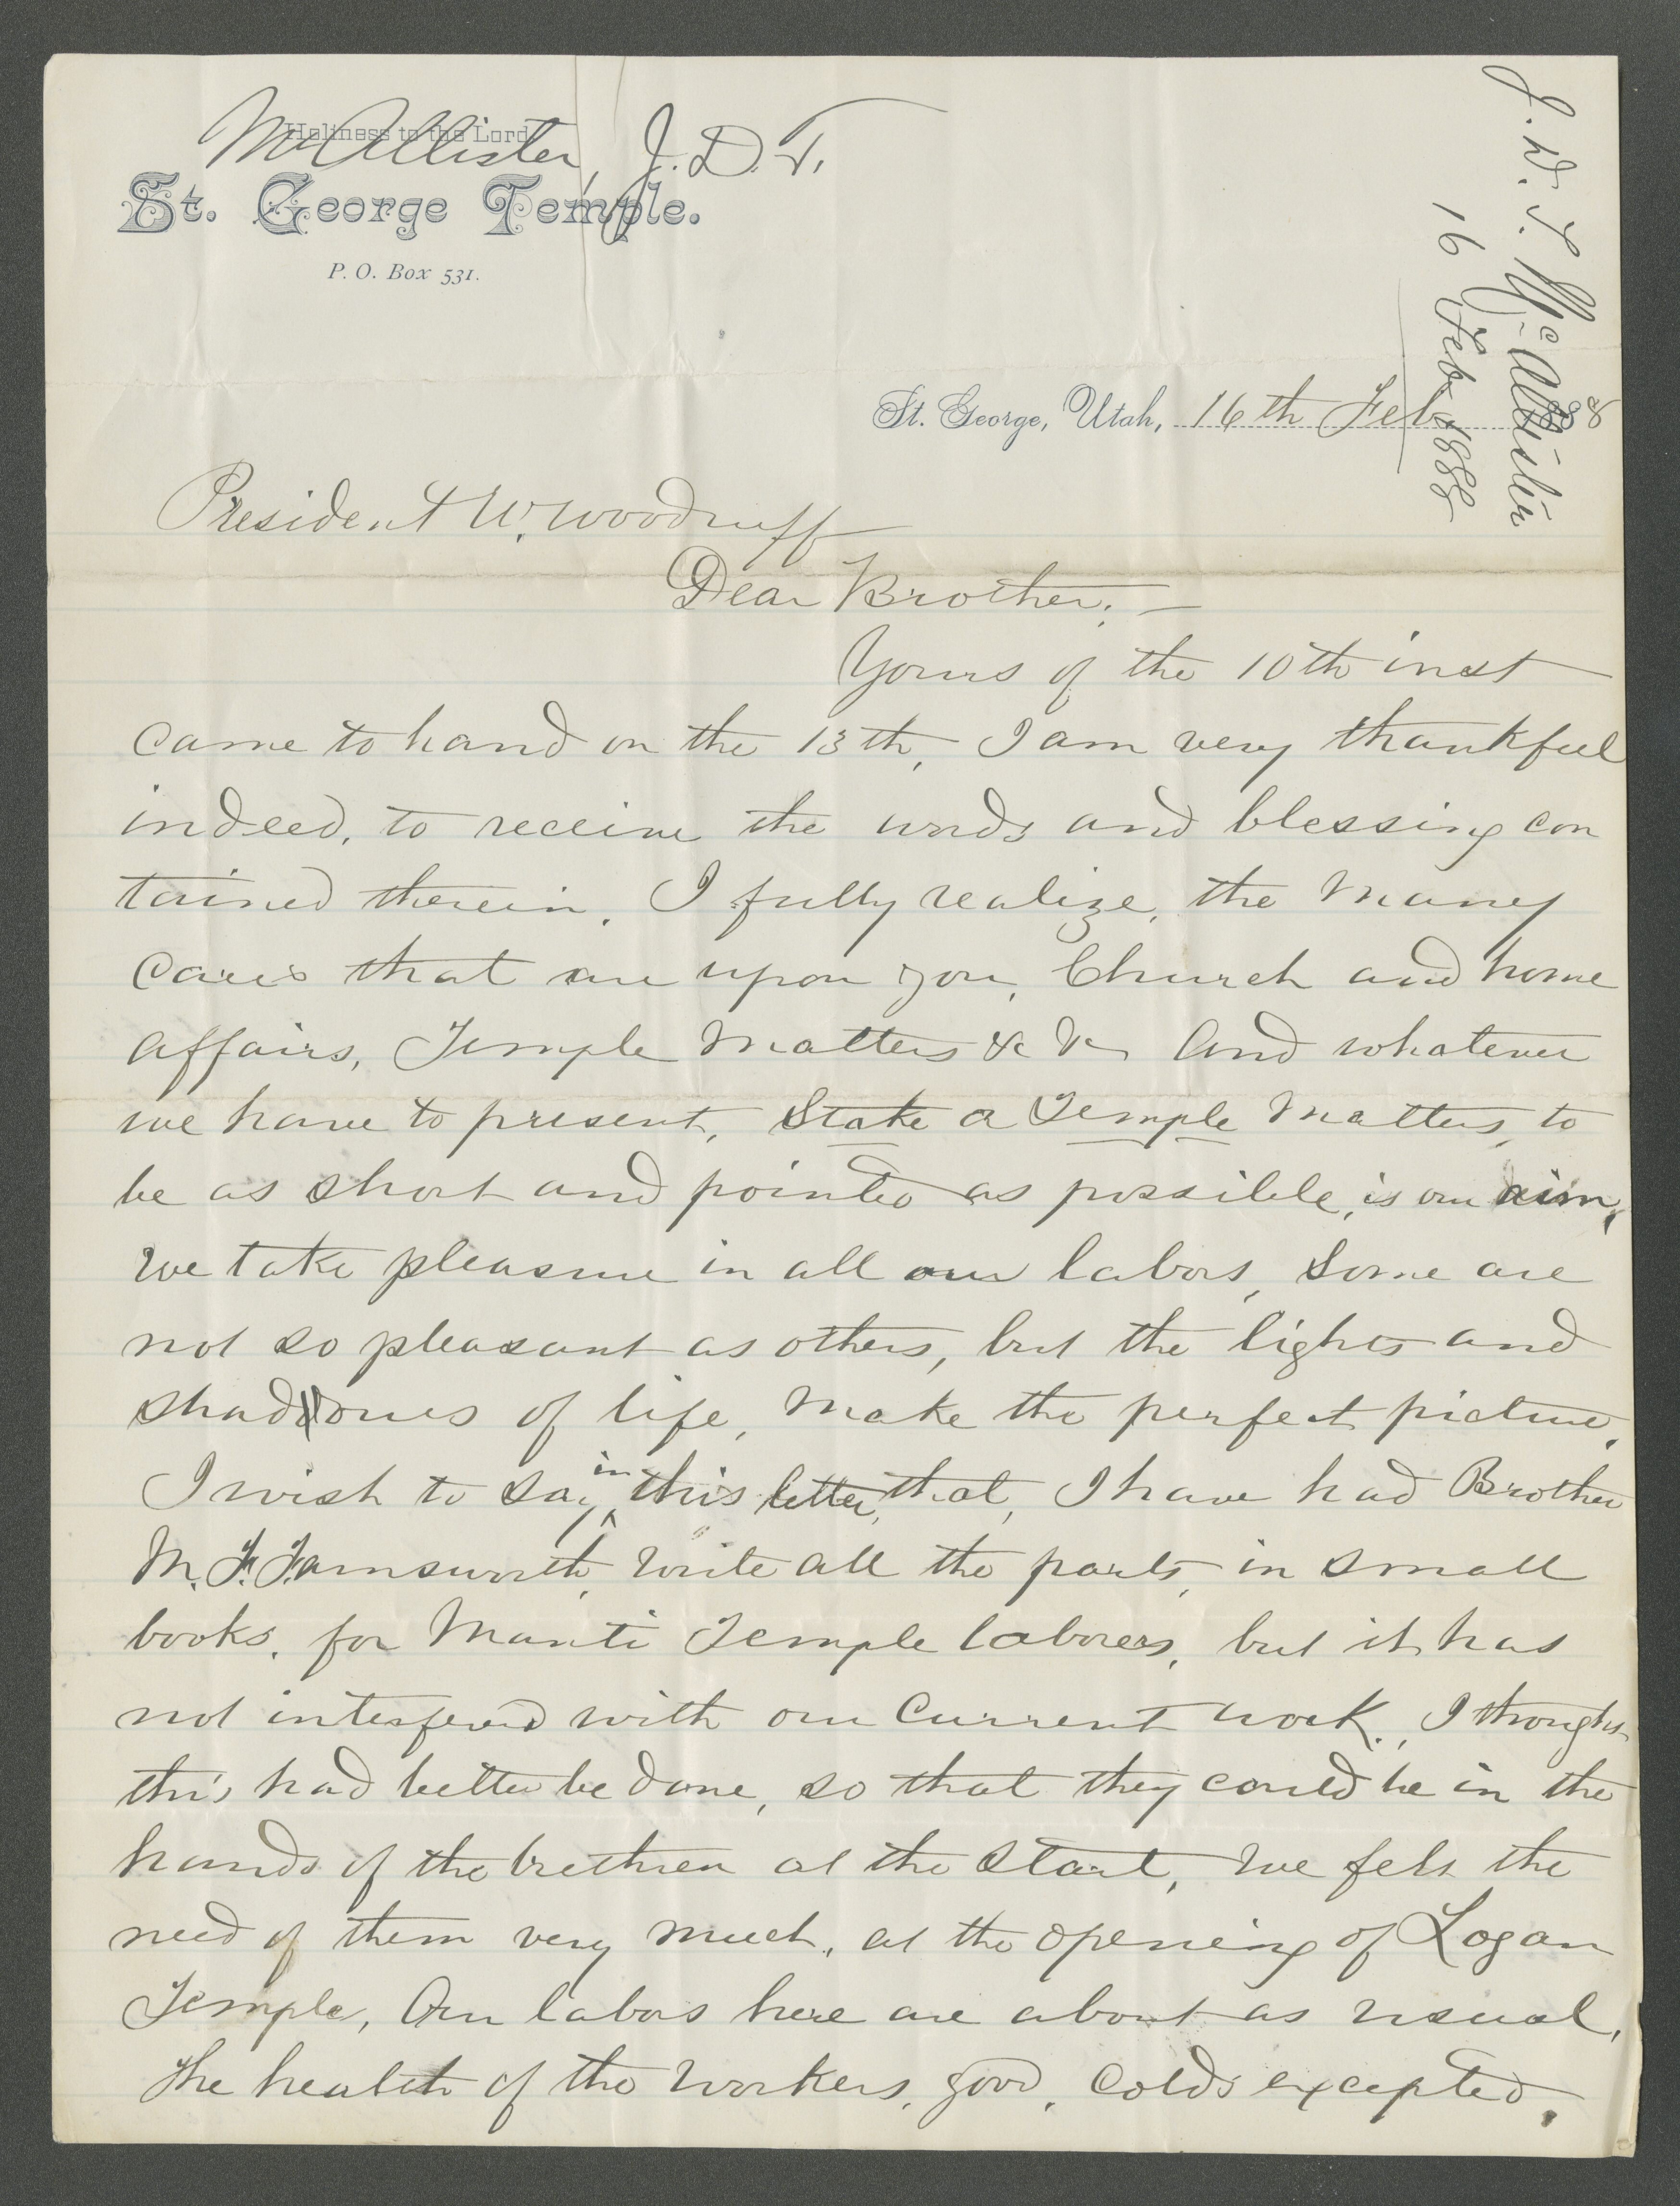 McAllister, J. D. T.
Holiness to the Lord
St. George Temple.
P. O. Box 531.
J. D. T. McAllister
16 Feb 1888
St. George, Utah, 16th Feb 1888
President W. Woodruff
Dear Brother;—
Yours of the 10th inst
came to hand on the 13th, I am very thankful
indeed, to receive the words and blessing con
tained therein. I fully realize, the many
cares that are upon you, Church and home
affairs, Temple matters &c &c And whatever
we have to present, Stake or Temple matters, to
be as short and pointed as possible, is our aim,
We take pleasure in all our labors, Some are
not so pleasant as others, but the lights and
shadows of life, make the perfect picture.
I wish to say in this letter, that, I have had Brother
M. F. Farnsworth, write all the parts, in small
books, for Manti Temple laborers, but it has
not interfered with our current work. I thought
this had better be done, so that they could be in the
hands of the brethren at the start, we felt the
need of them very much, at the opening of Logan
Temple, Our labors here are about as usual,
The health of the workers, good, colds excepted.